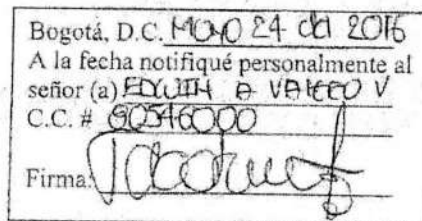 Bogotá, D.C. Mayo 24 del 2016
A la fecha notifiqué personalmente al
señor (a) EDWITH A VALERO V
C.C. # 80546000
Firma: